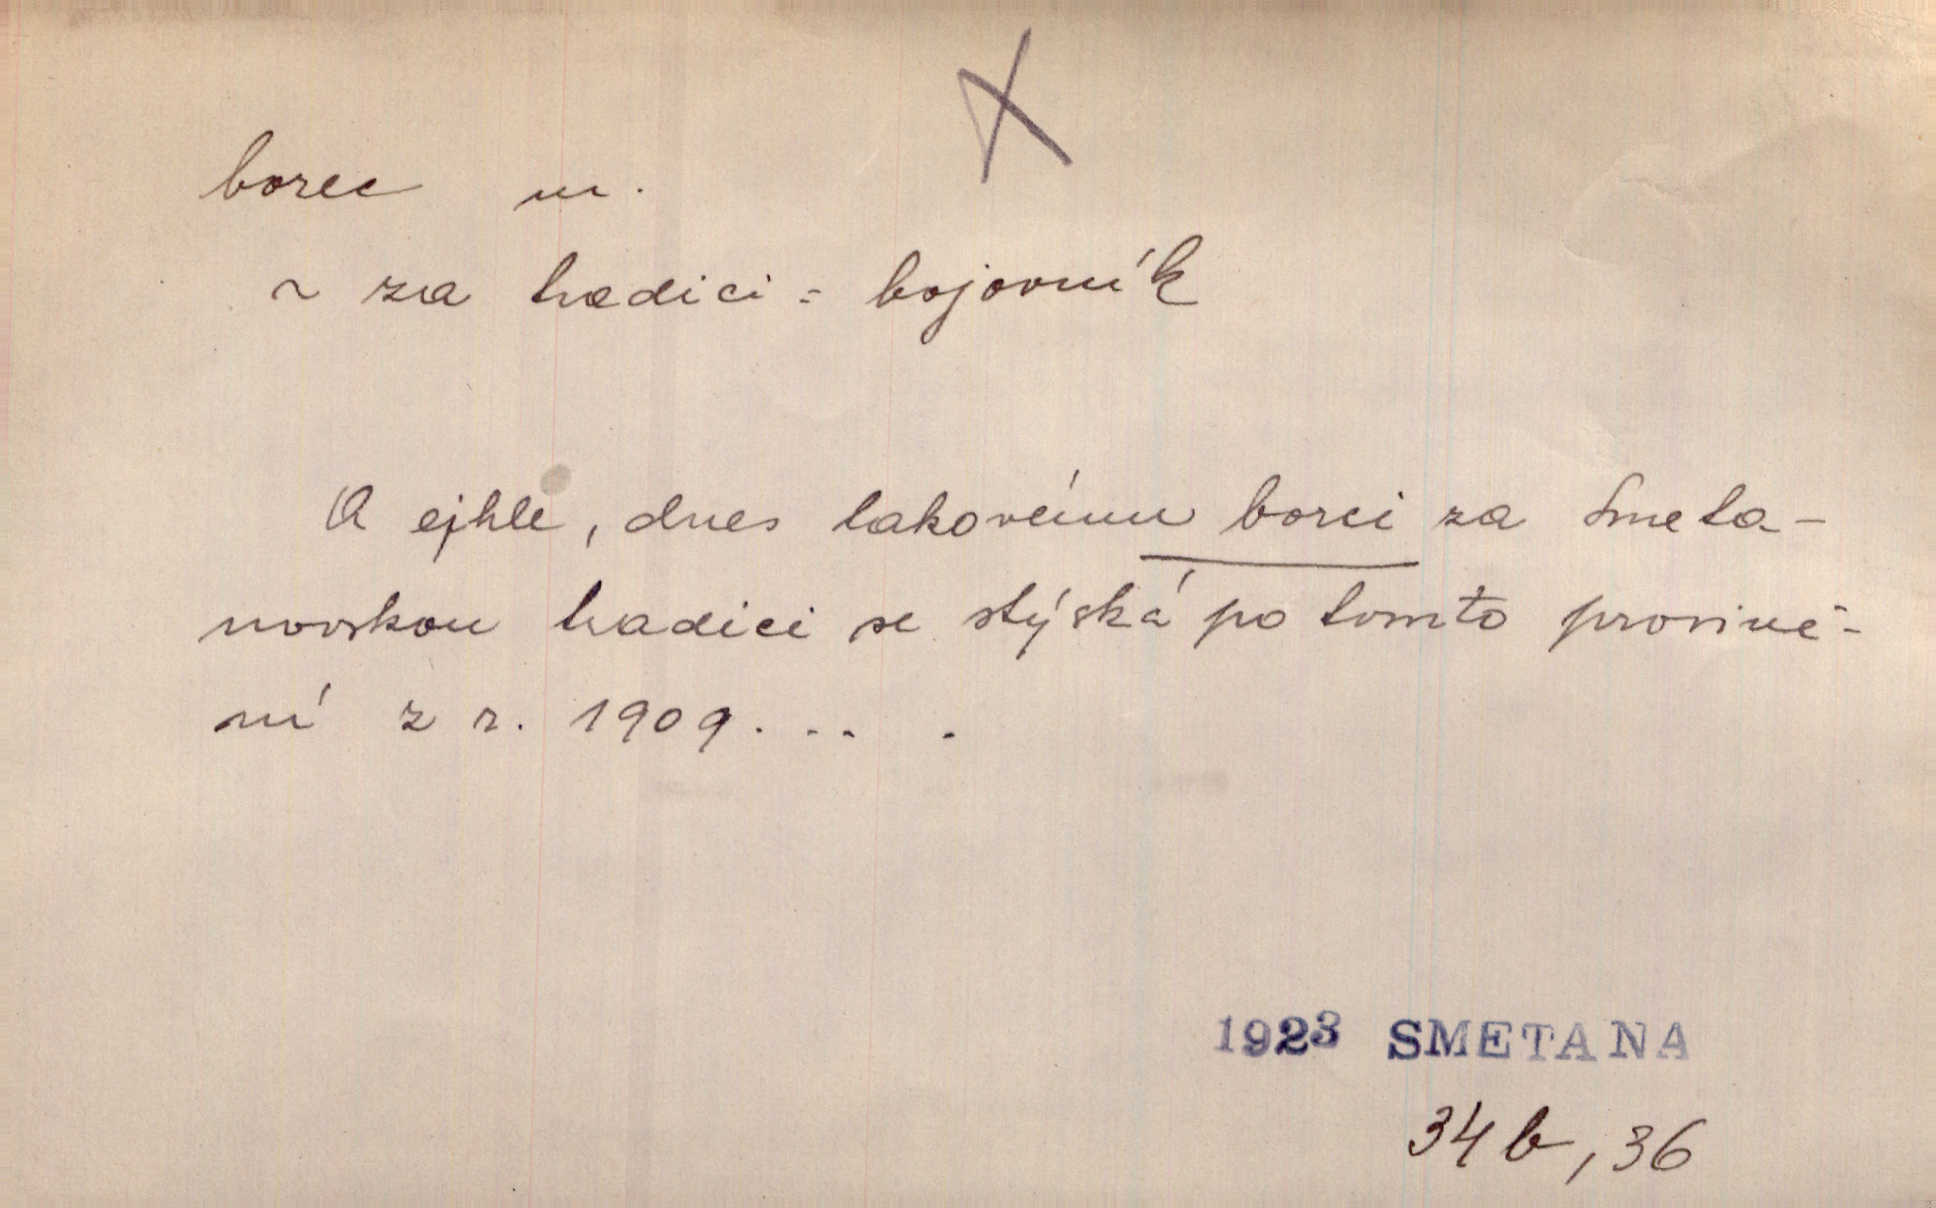 borec m.
~ za tradici = bojovník
A ejhle, dnes takovému borci za smeta-
novskou tradici se stýská po tomto provině-
ní z r. 1909. . . .
1923 SMETANA
34 b, 36